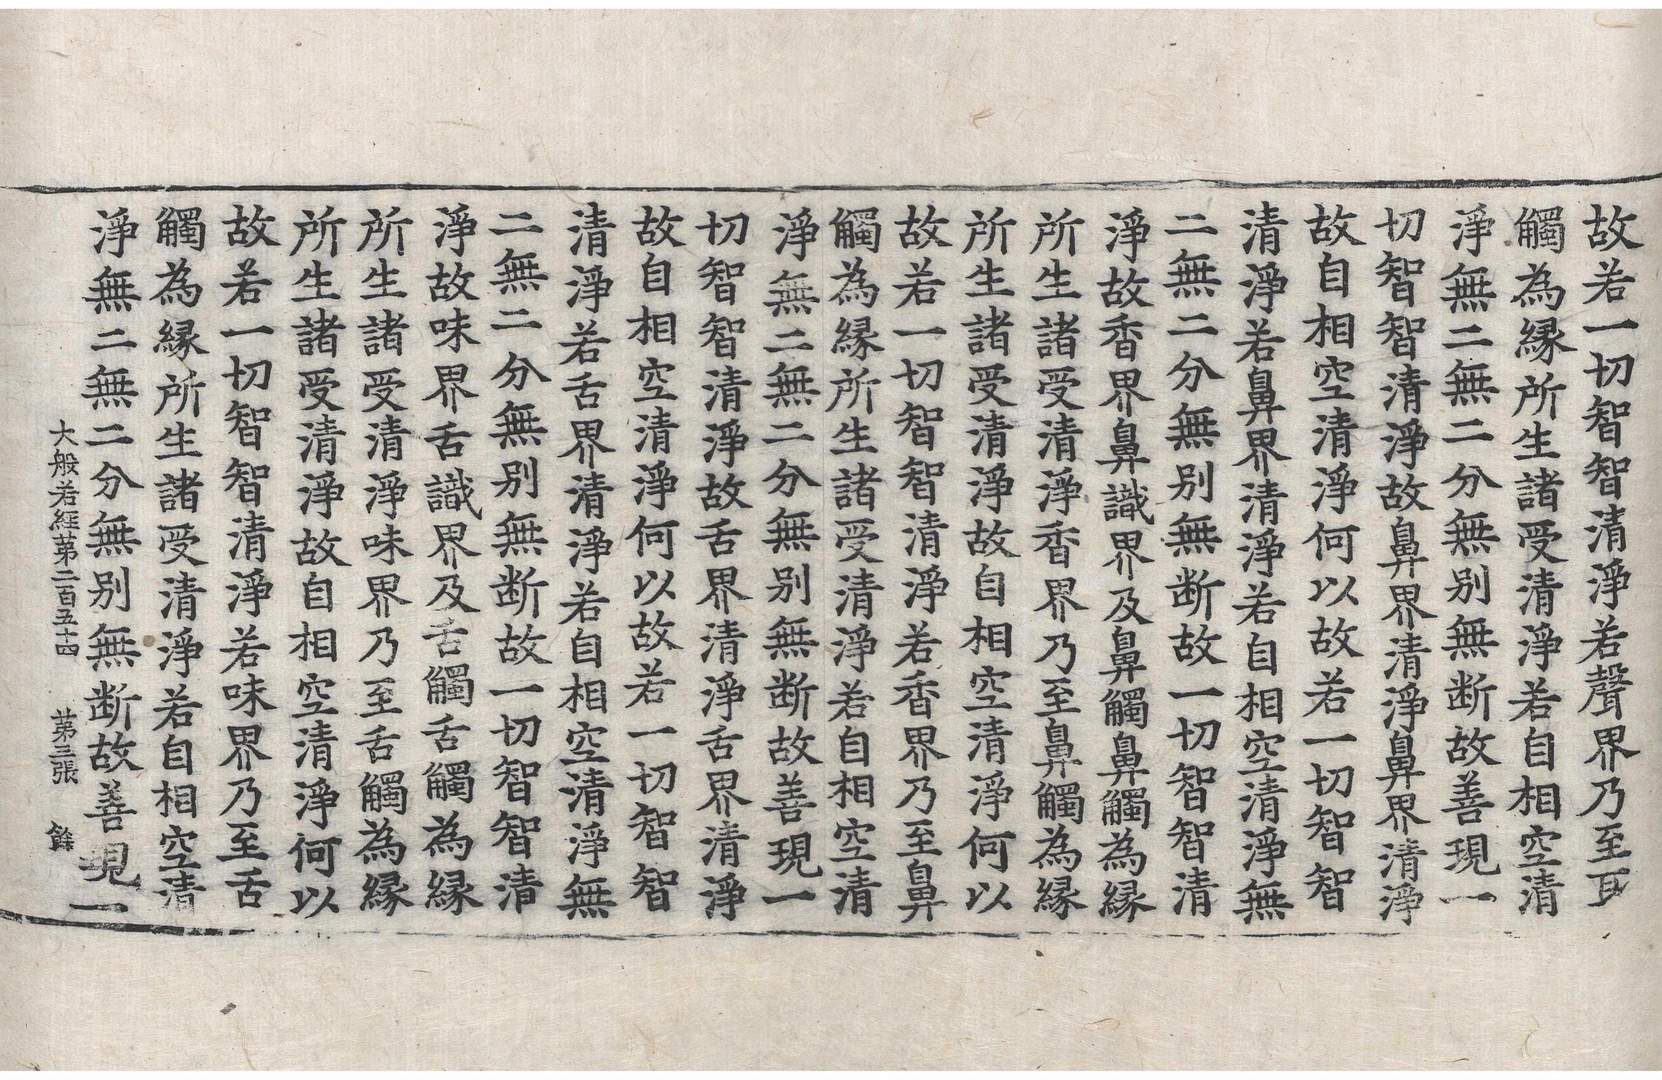 故若一切智智清淨若聲界乃至耳
觸為縁所生諸受清淨若自相空清
淨無二無二分無别無断故善現一
切智智清淨故鼻界清淨鼻界清淨
故自相空清淨何以故若一切智智
清淨若鼻界清淨若自相空清淨無
二無二分無别無断故一切智智清
淨故香界鼻識界及鼻觸鼻觸為縁
所生諸受清淨香界乃至鼻觸為縁
所生諸受清淨故自相空清淨何以
故若一切智智清淨若香界乃至鼻
觸為縁所生諸受清淨若自相空清
淨無二無二分無别無断故善現一
切智智清淨故舌界清淨舌界清淨
故自相空清淨何以故若一切智智
清淨若舌界清淨若自相空清淨無
二無二分無别無断故一切智智清
淨故味界舌識界及舌觸舌觸為縁
所生諸受清淨味界乃至舌觸為縁
所生諸受清淨故自相空清淨何以
故若一切智智清淨若味界乃至舌
觸為縁所生諸受清淨若自相空清
淨無二無二分無别無断故善現一
大般若經第二百五十四 第三張 餘